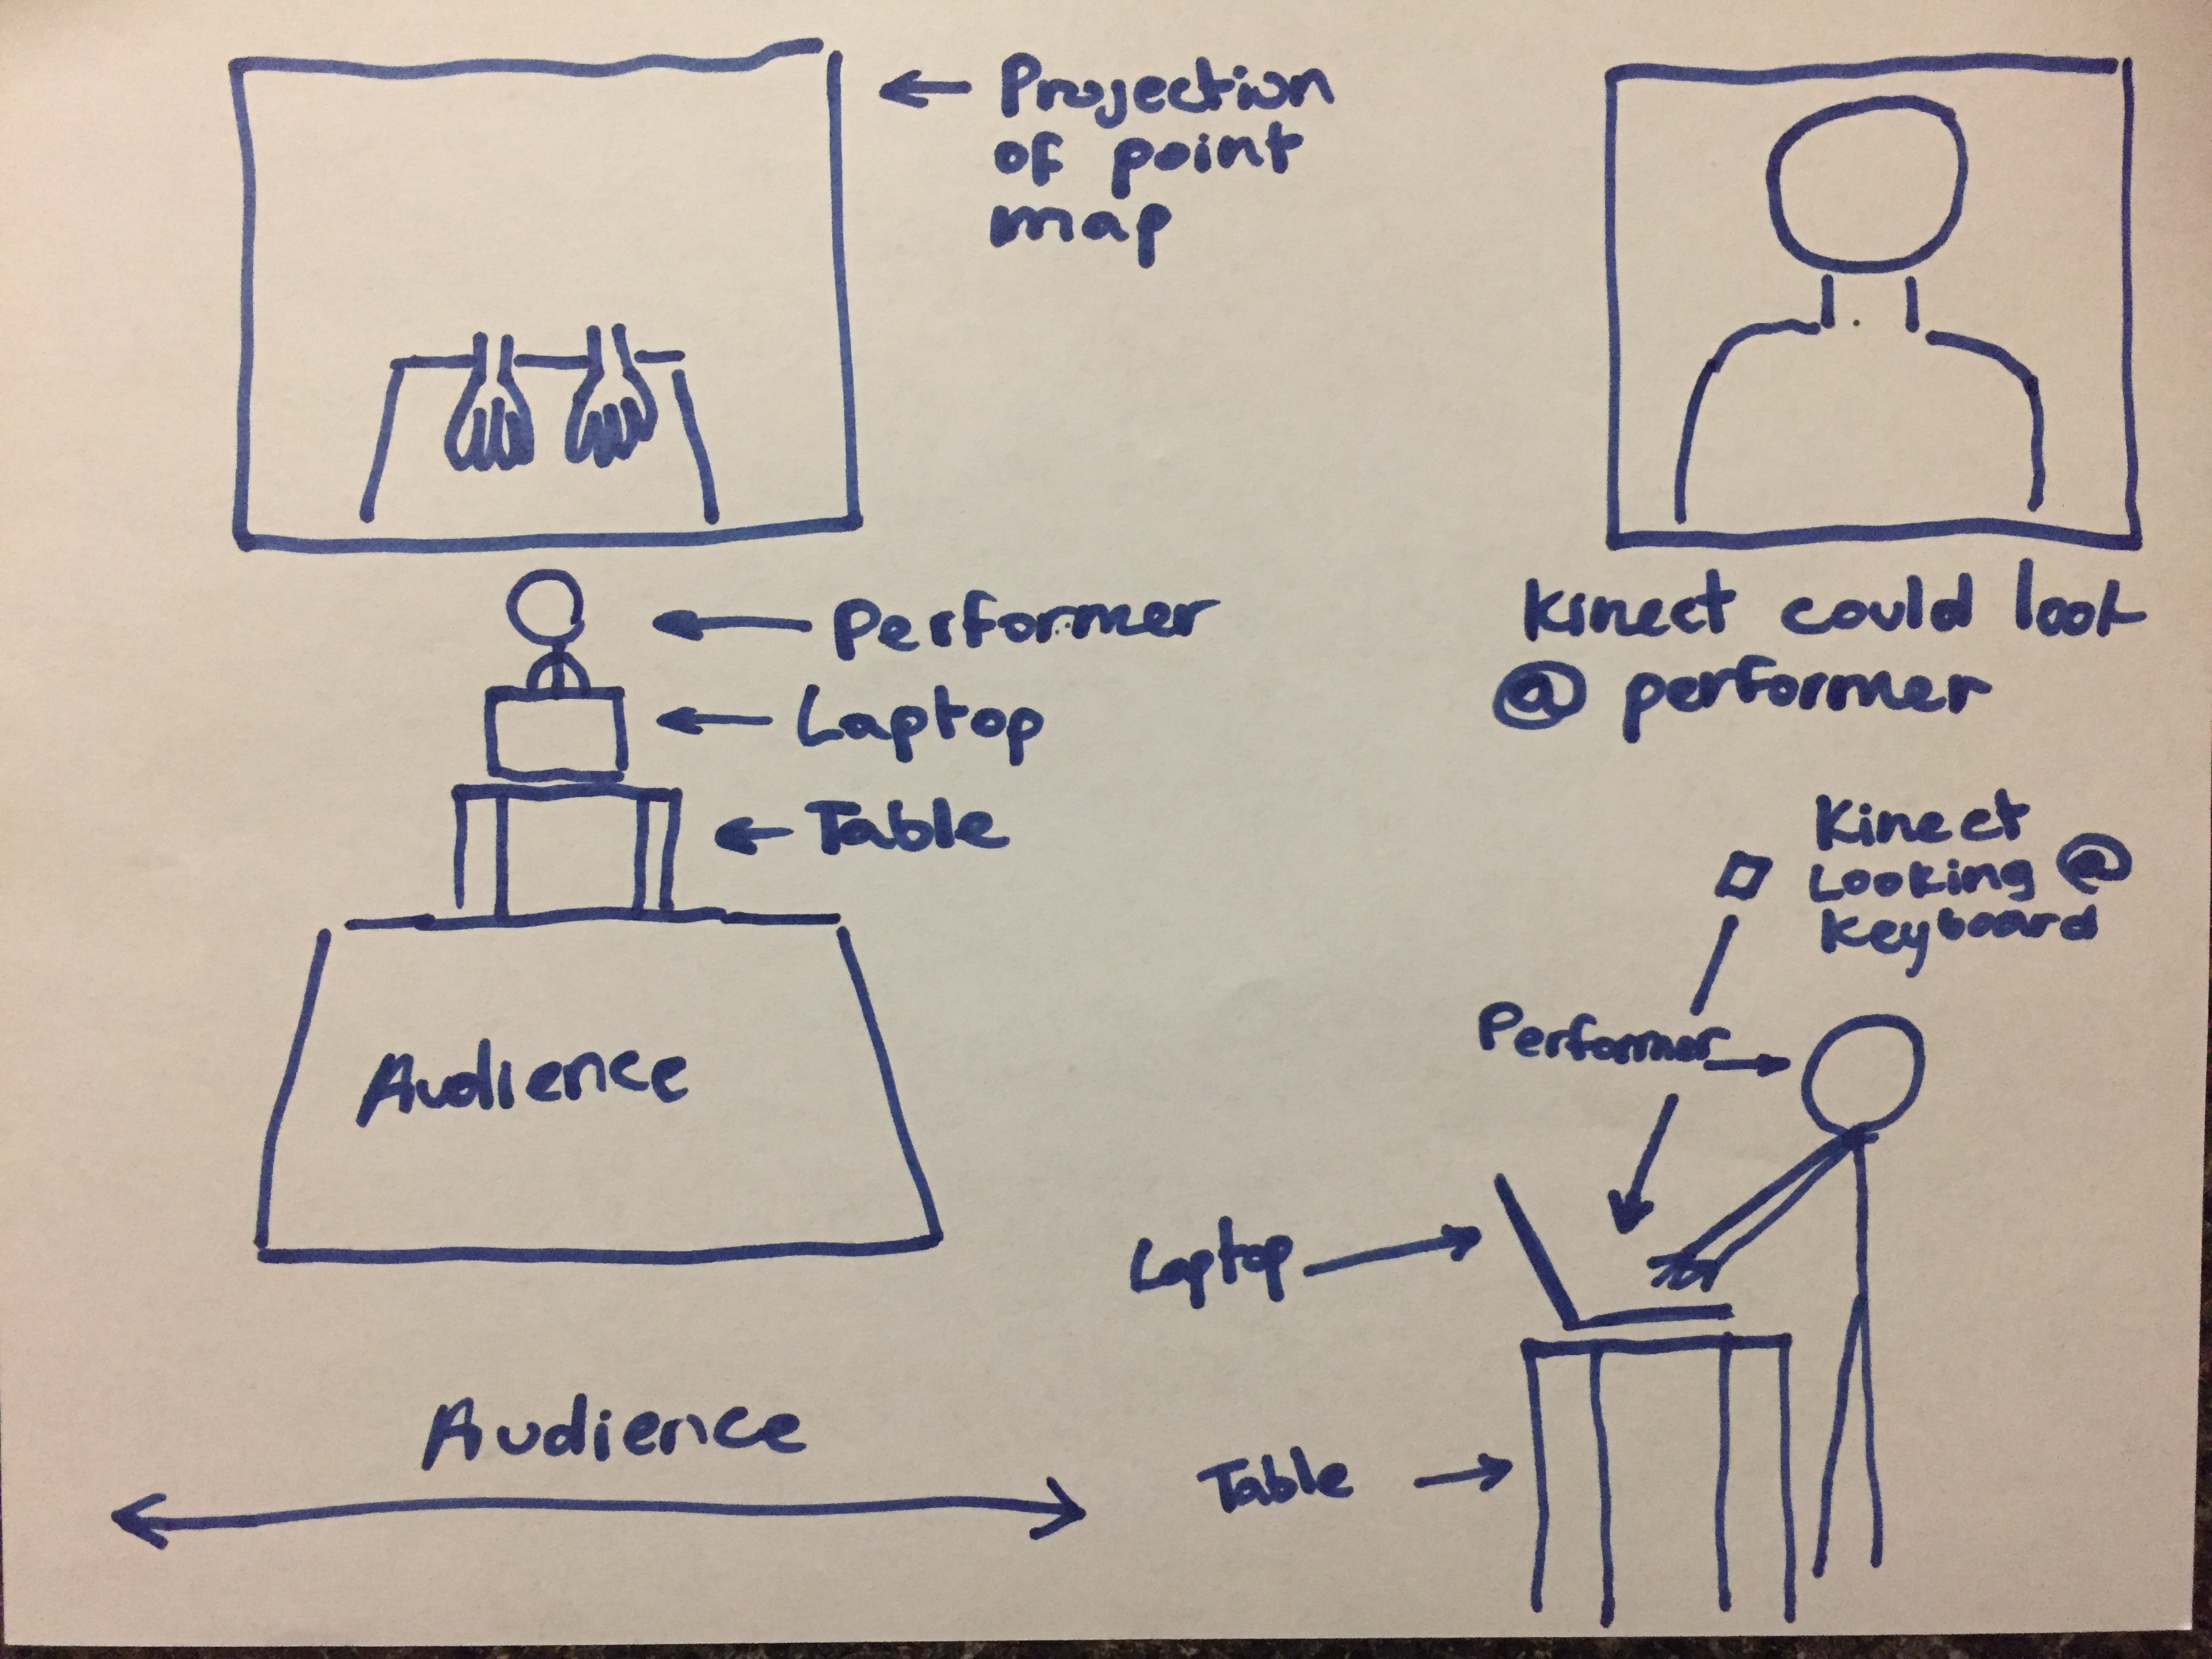 ← Projection
of point
map
← Performer
← Laptop
← Table
Audience
Audience
Kinect could look
@ performer
Kinect
Looking @
Keyboard
Performer →
Laptop →
Table →